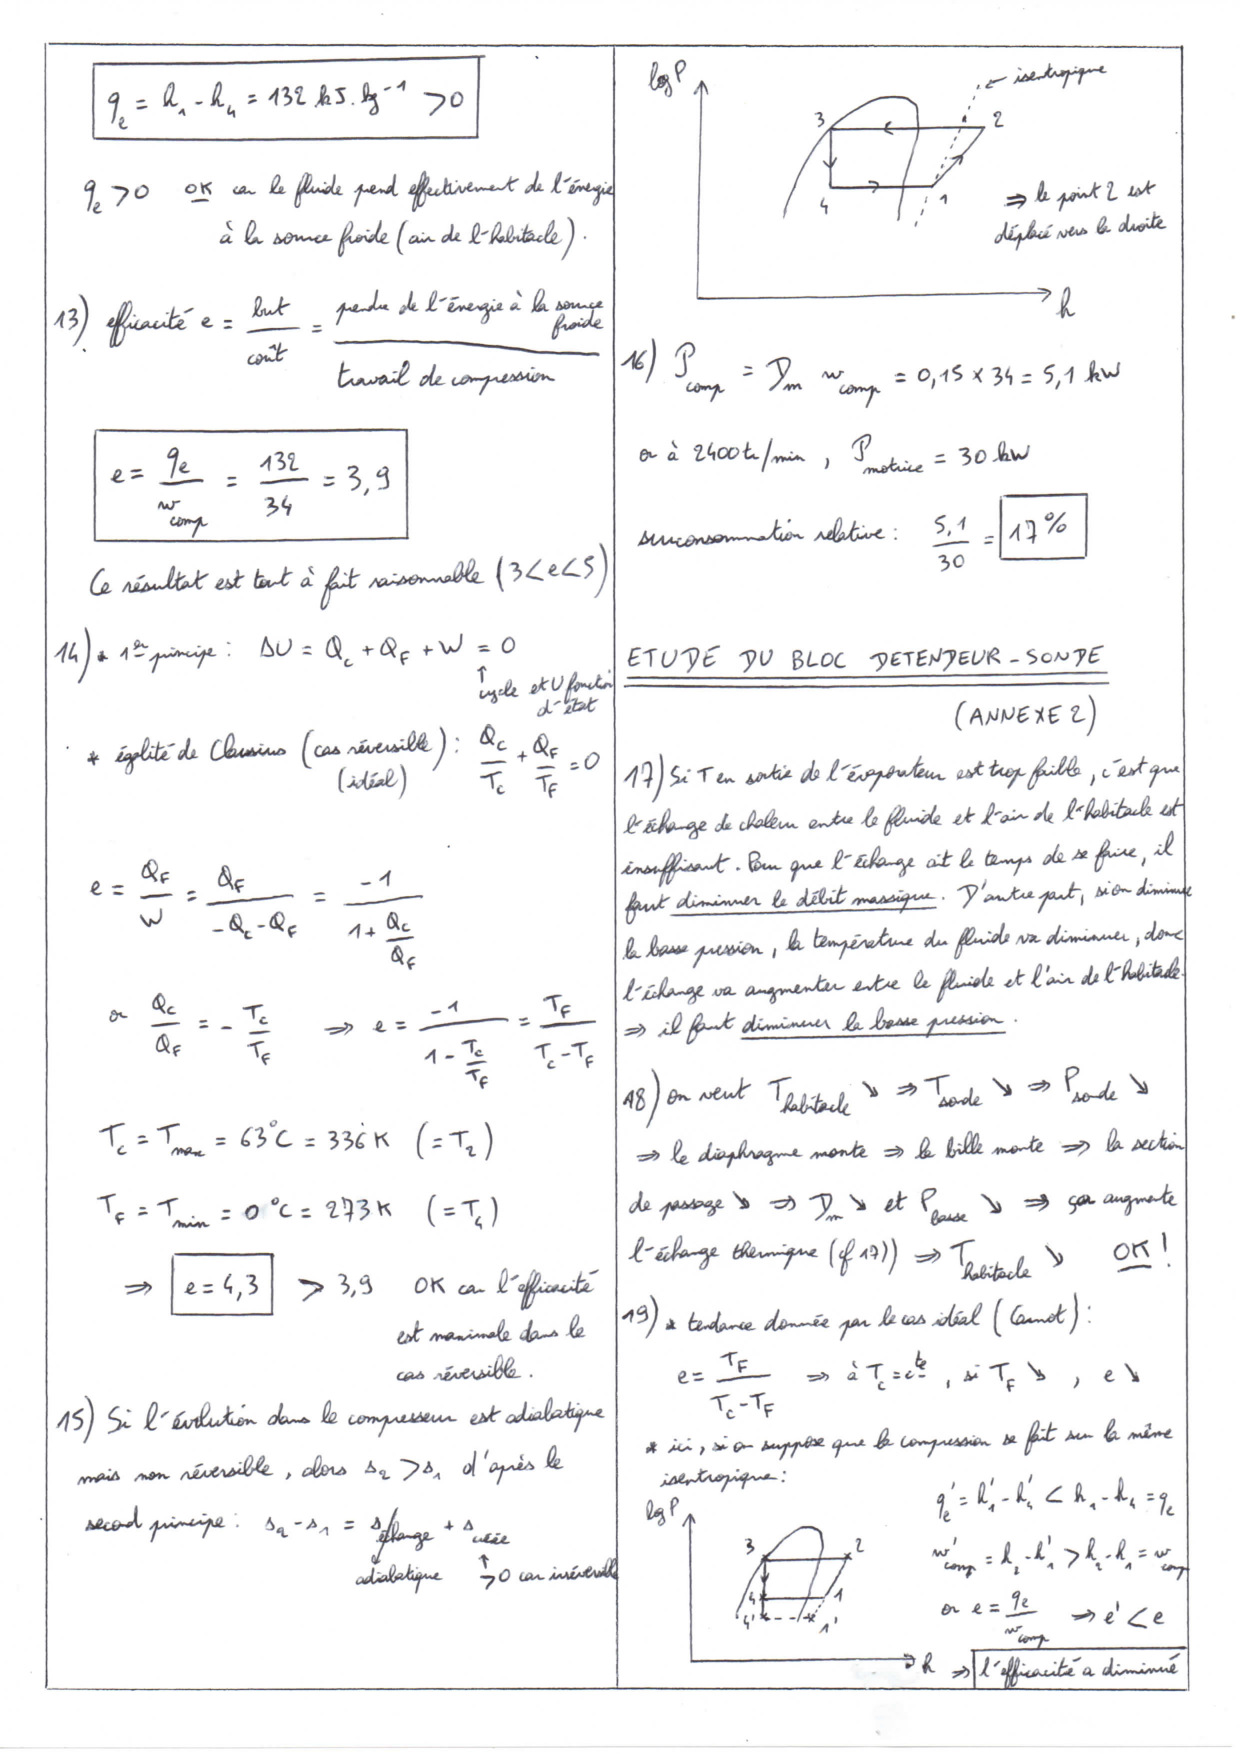 q_e = h_1 - h_4 = 132 kJ.kg^-1 > 0
q_e > 0 OK car le fluide prend effectivement de l'énergie
à la source froide (air de l'habitacle).
13) efficacité e = but / coût = prendre de l'énergie à la source froide / travail de compression
e = q_e / w_comp = 132 / 34 = 3,9
Ce résultat est tout à fait raisonnable (3<e<5)
14) * 1er principe : ΔU = Q_c + Q_F + W = 0
↑
cycle et U fonction
d'état
* égalité de Clausius (cas réversible) : Q_c/T_c + Q_F/T_F = 0
(idéal)
e = Q_F / W = Q_F / (-Q_c - Q_F) = -1 / (1 + Q_c/Q_F)
or Q_c/Q_F = - T_c/T_F ⇒ e = -1 / (1 - T_c/T_F) = T_F / (T_c - T_F)
T_c = T_max = 63°C = 336 K (= T_2)
T_F = T_min = 0°C = 273 K (= T_4)
⇒ e = 4,3 > 3,9 OK car l'efficacité
est maximale dans le
cas réversible.
15) Si l'évolution dans le compresseur est adiabatique
mais non réversible, alors s_2 > s_1 d'après le
second principe : s_2 - s_1 = s_échange + s_créée
adiabatique ↑ >0 car irréversible
log P
isentropique
3 2
4 1
⇒ le point 2 est
déplacé vers la droite
h
16) P_comp = D_m w_comp = 0,15 × 34 = 5,1 kW
or à 2400 tr/min, P_motrice = 30 kW
surconsommation relative : 5,1 / 30 = 17%
ETUDE DU BLOC DETENDEUR-SONDE
(ANNEXE 2)
17) Si T en sortie de l'évaporateur est trop faible, c'est que
l'échange de chaleur entre le fluide et l'air de l'habitacle est
insuffisant. Pour que l'échange ait le temps de se faire, il
faut diminuer le débit massique. D'autre part, si on diminue
la basse pression, la température du fluide va diminuer, donc
l'échange va augmenter entre le fluide et l'air de l'habitacle.
⇒ il faut diminuer la basse pression.
18) On veut T_habitacle ↘ ⇒ T_sonde ↘ ⇒ P_sonde ↘
⇒ le diaphragme monte ⇒ la bille monte ⇒ la section
de passage ↘ ⇒ D_m ↘ et P_basse ↘ ⇒ ça augmente
l'échange thermique (cf 17)) ⇒ T_habitacle ↘ OK !
19) * tendance donnée par le cas idéal (Carnot) :
e = T_F / (T_c - T_F) ⇒ à T_c = cte, si T_F ↘, e ↘
* ici, si on suppose que la compression se fait sur la même
isentropique :
q_e' = h_1' - h_4' < h_1 - h_4 = q_e
w'_comp = h_2 - h_1' > h_2 - h_1 = w_comp
or e = q_e / w_comp ⇒ e' < e
log P
3 2
4 1
4' 1'
h
⇒ l'efficacité a diminué